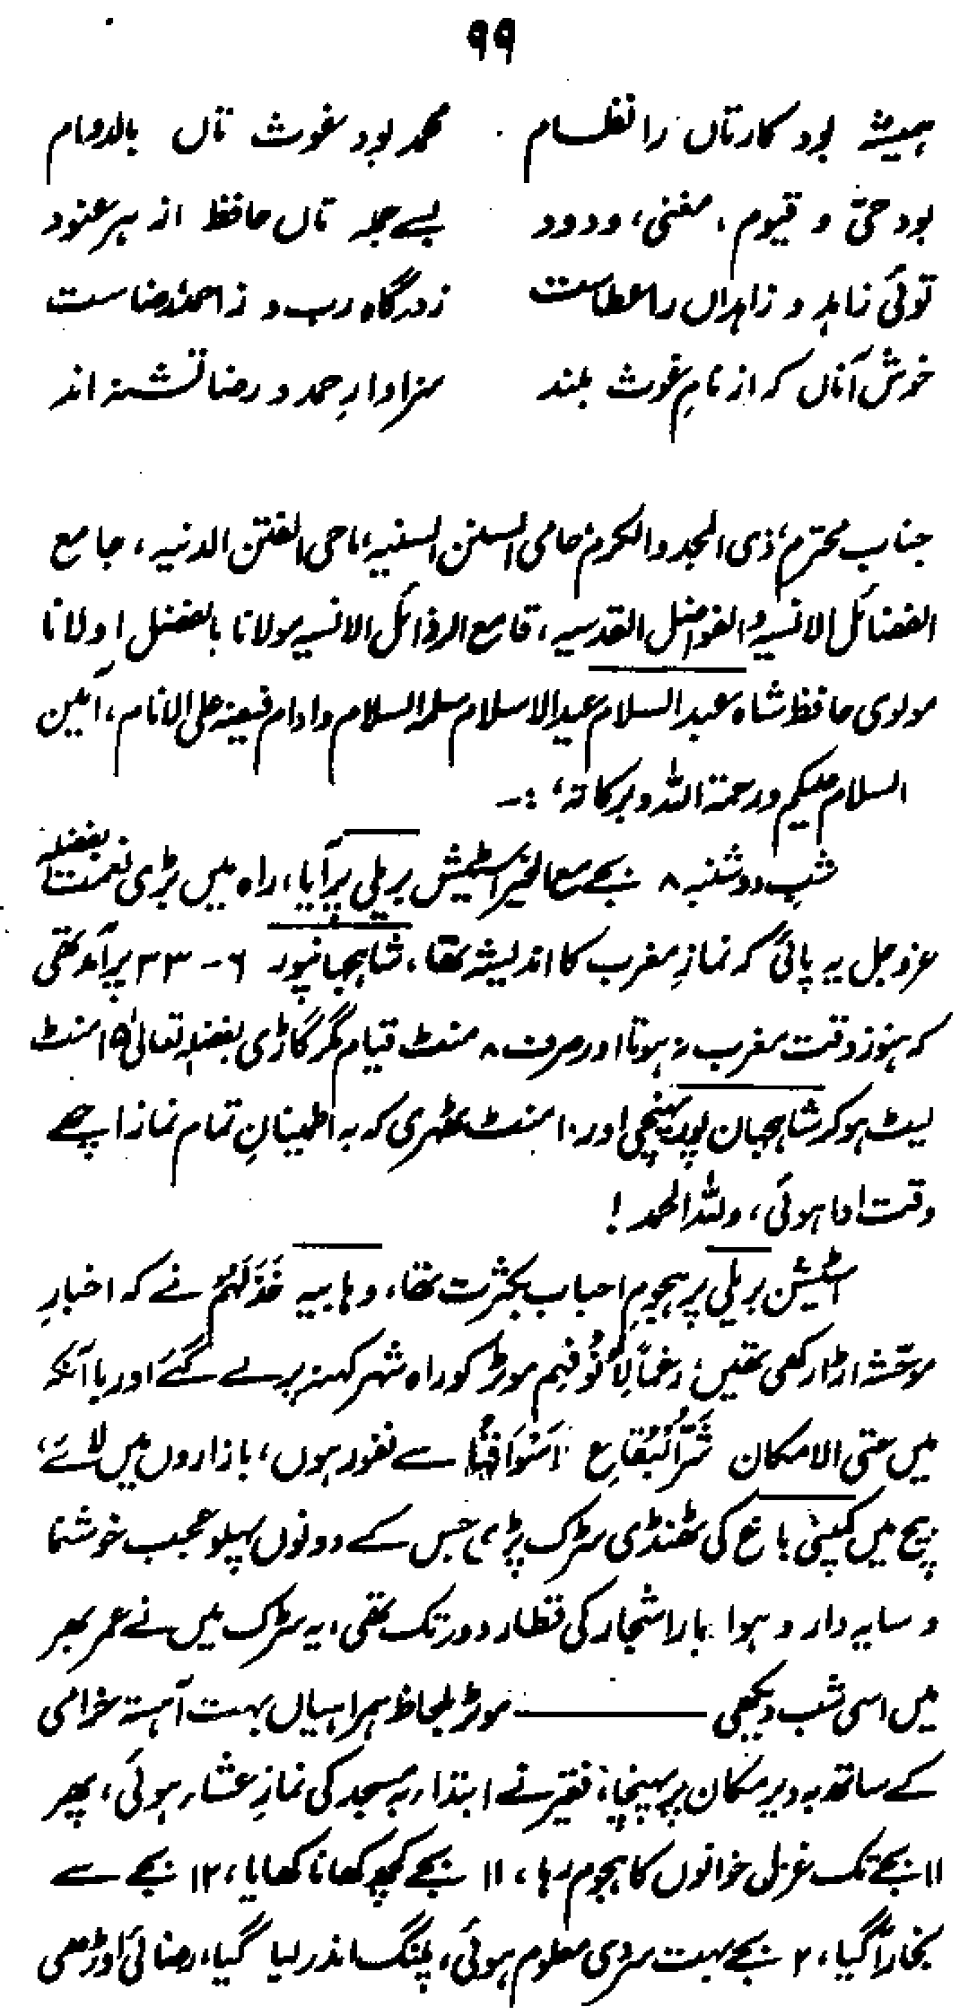 ۹۹
ہمیشہ بود کارتاں را نظام محمد بود غوث تاں بالدوام
بود حیّ و قیوم، مغنی، ودود پسے جملہ تاں حافظ از ہر عنود
توئی زاہد و زاہداں را عطاست زدرگاہ رب و ز احمد رضاست
خوش آناں کہ از نامِ غوث بلند سزاوارِ حمد و رضا تشنہ اند
جناب محترم ذی المجد والکرم حامی السنن السنیہ، ماحی الفتن الدنیہ، جامع
الفضائل الانسیہ والفواضل القدسیہ، قامع الرذائل الانسیہ مولانا بالفضل اولانا
مولوی حافظ شاہ عبدالسلام عیدالاسلام سلمہ السلام وادام فیضہ علی الانام، آمین
السلام علیکم ورحمۃ اللہ وبرکاتہ، :۔
شبِ دوشنبہ ۸ بجے مع الخیر اسٹیشن بریلی پر آیا، راہ میں بڑی نعمت بفضلہ
عزوجل یہ پائی کہ نمازِ مغرب کا اندیشہ تھا، شاہجہانپور ۶ - ۳۳ پر آمد تھی
کہ ہنوز وقت مغرب نہ ہوتا اور صرف ۸ منٹ قیام مگر گاڑی بفضلہ تعالیٰ ۱۵ منٹ
لیٹ ہو کر شاہجہان پور پہنچی اور ۱۰ منٹ ٹھہری کہ بہ اطمینانِ تمام نماز اچھے
وقت ادا ہوئی، وللہ الحمد!
اسٹیشن بریلی پر ہجومِ احباب بکثرت تھا، وہابیہ خَذَلَہُمْ نے کہ اخبارِ
موحّشہ اڑا رکھی تھیں، رغماً لِاُنُوْفِہِم موٹر کو راہ شہر کہنہ پر لے گئے اور باآنکہ
میں حتی الامکان شَرُّ الْبُقَاعِ اَسْوَاقُہَا سے نفور ہوں، بازاروں میں لائے،
بیچ میں کمپنی باغ کی ٹھنڈی سڑک پڑی جس کے دونوں پہلو عجب خوشنما
و سایہ دار و ہوا بار اشجار کی قطار دور تک تھی، یہ سڑک میں نے عمر بھر
میں اسی شب دیکھی ——— موٹر بلحاظ ہمراہیاں بہت آہستہ خرامی
کے ساتھ بہ دیر مکان پر پہنچا، فقیر نے ابتدا بہ مسجد کی نمازِ عشاء ہوئی، پھر
۱۱ بجے تک غزل خوانوں کا ہجوم رہا، ۱۱ بجے کچھ کھانا کھایا، ۱۲ بجے سے
بخار آگیا، ۲ بجے بہت سردی معلوم ہوئی، پلنگ اندر لیا گیا، رضائی اوڑھی